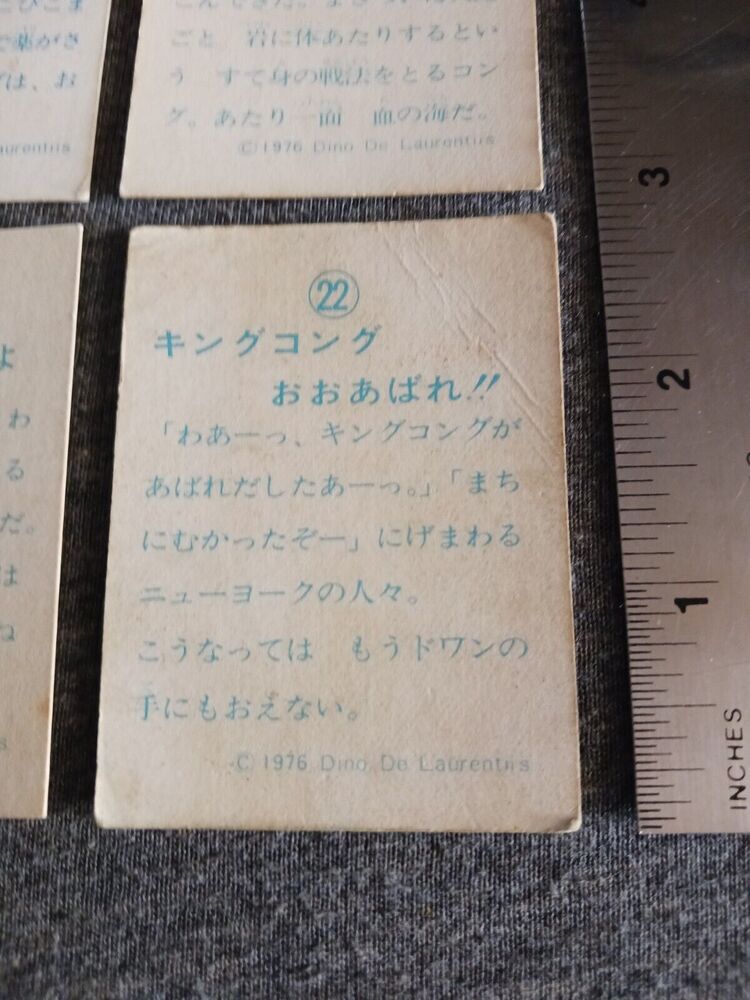 こんできた。
ごと 岩に体あたりするとい
う すて身の戦法をとるコン
グ。あたり一面 血の海だ。
©1976 Dino De Laurentiis
で薬がさ
は、お
aurentiis
22
キングコング
おおあばれ!!
「わあーっ、キングコングが
あばれだしたあーっ。」「まち
にむかったぞー」にげまわる
ニューヨークの人々。
こうなっては もうドワンの
手にもおえない。
©1976 Dino De Laurentiis
よ
わ
る
だ。
は
ね
s
3
2
1
INCHES